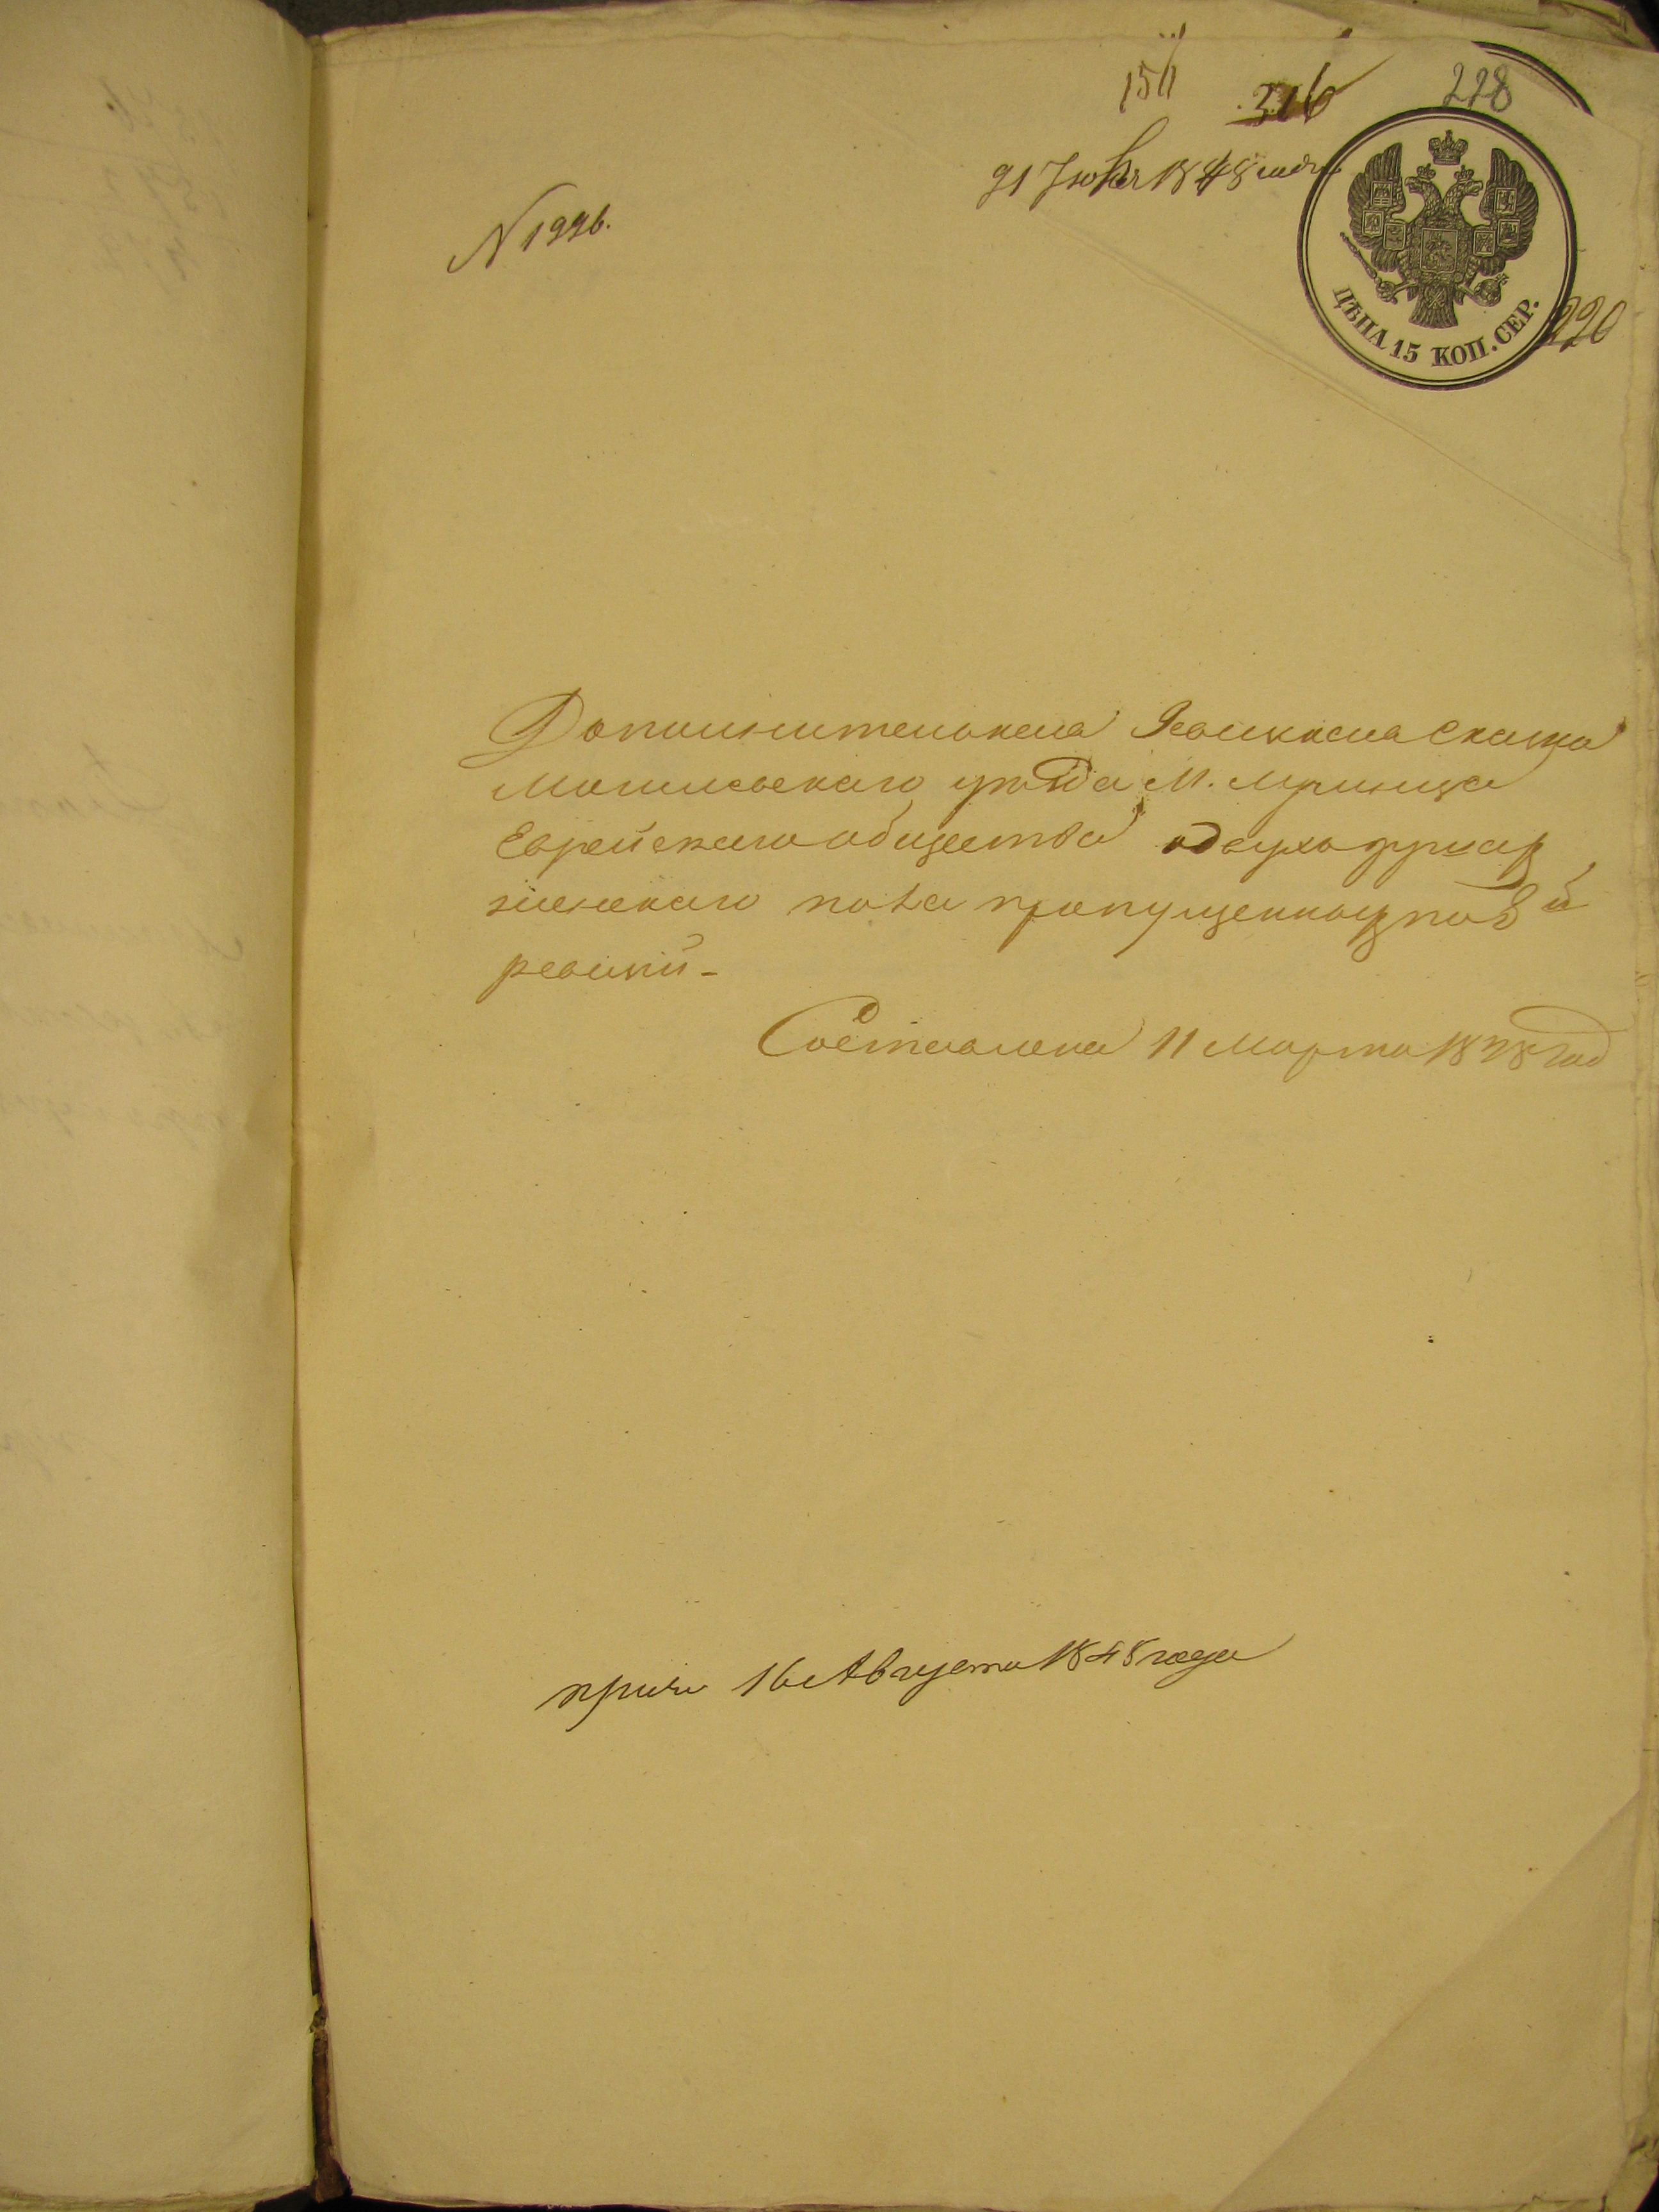 228
316
21 Июня 1848
N 1996.
ЦѢНА 15 КОП. СЕР.
220
Дополнительная Ревизкая Сказка
Могилевскаго уѣзда М.
Еврейскаго общества о двухъ душах
женскаго пола пропущенных по 8й
ревизіи
Составлена 11 Марта 1848 год
16 Августа 1848 года